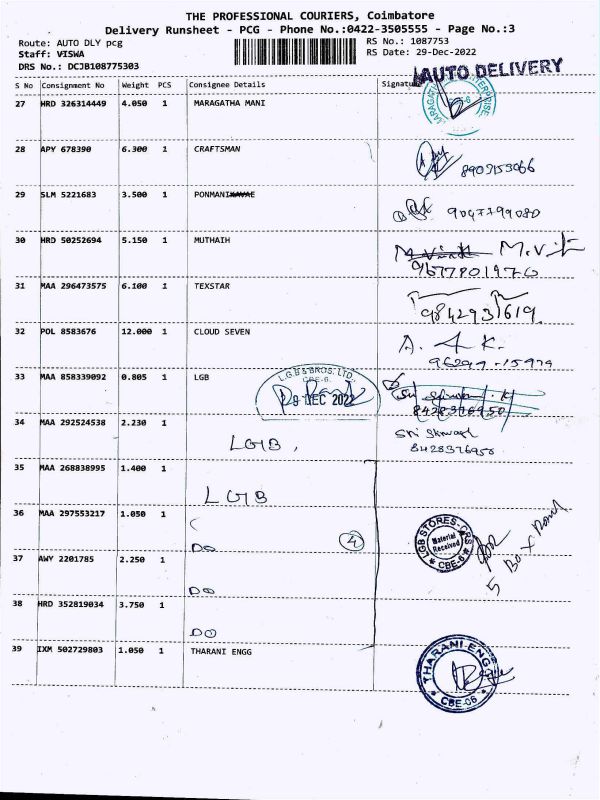 THE PROFESSIONAL COURIERS, Coimbatore
Delivery Runsheet - PCG - Phone No.:0422-3505555 - Page No.:3
Route: AUTO DLY pcg
RS No.: 1087753
Staff: VISWA
RS Date: 29-Dec-2022
DRS No.: DCJB108775303
AUTO DELIVERY
S No Consignment No Weight PCS Consignee Details Signature
27 HRD 326314449 4.050 1 MARAGATHA MANI
28 APY 678390 6.300 1 CRAFTSMAN
8903153066
29 SLM 5221683 3.500 1 PONMANI
9047799080
30 HRD 50252694 5.150 1 MUTHAIH
M.Vi
9677801970
31 MAA 296473575 6.100 1 TEXSTAR
9842931619
32 POL 8583676 12.000 1 CLOUD SEVEN
33 MAA 858339092 0.805 1 LGB
L.G.B & BROS. LTD.,
CBE-6.
DEC 2022
8428376950
34 MAA 292524538 2.230 1
LGB,
8428376950
35 MAA 268838995 1.400 1
LGB
36 MAA 297553217 1.050 1
DO
4
LGB STORES-CRS
Material
Received
CBE-6
5 Box
37 AWY 2201785 2.250 1
DO
38 HRD 352819034 3.750 1
DO
39 IXM 502729803 1.050 1 THARANI ENGG
THARANI-ENGG
CBE-06